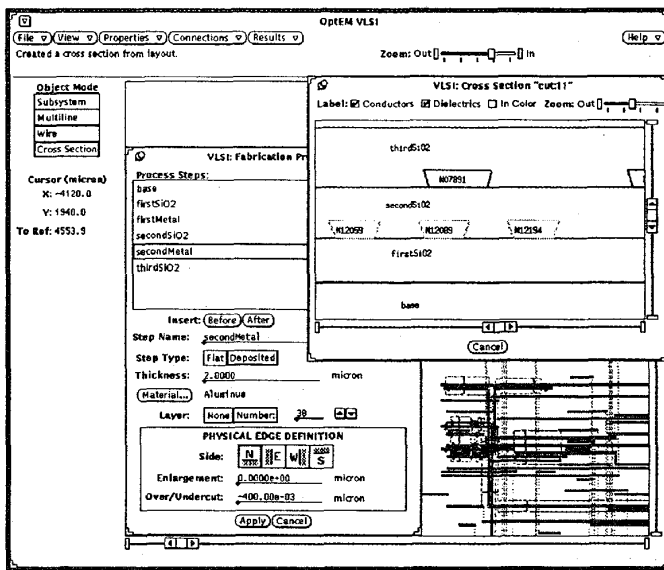 OptEM VLSI
File View Properties Connections Results Help
Created a cross section from layout. Zoom: Out In
Object Mode
Subsystem
Multiline
Wire
Cross Section
Cursor (micron)
X: -4120.0
Y: 1940.0
To Ref: 4553.9
VLSI: Fabrication Pr
Process Steps:
base
firstSiO2
firstMetal
secondSiO2
secondMetal
thirdSiO2
Insert: Before After
Step Name: secondMetal
Step Type: Flat Deposited
Thickness: 2.0000 micron
Material... Aluminum
Layer: None Number: 30
PHYSICAL EDGE DEFINITION
Side: N E W S
Enlargement: 0.0000e+00 micron
Over/Undercut: -400.00e-03 micron
Apply Cancel
VLSI: Cross Section "cut11"
Label: Conductors Dielectrics In Color Zoom: Out
thirdSiO2
N07891
secondSiO2
N12059 N12089 N12194
firstSiO2
base
Cancel